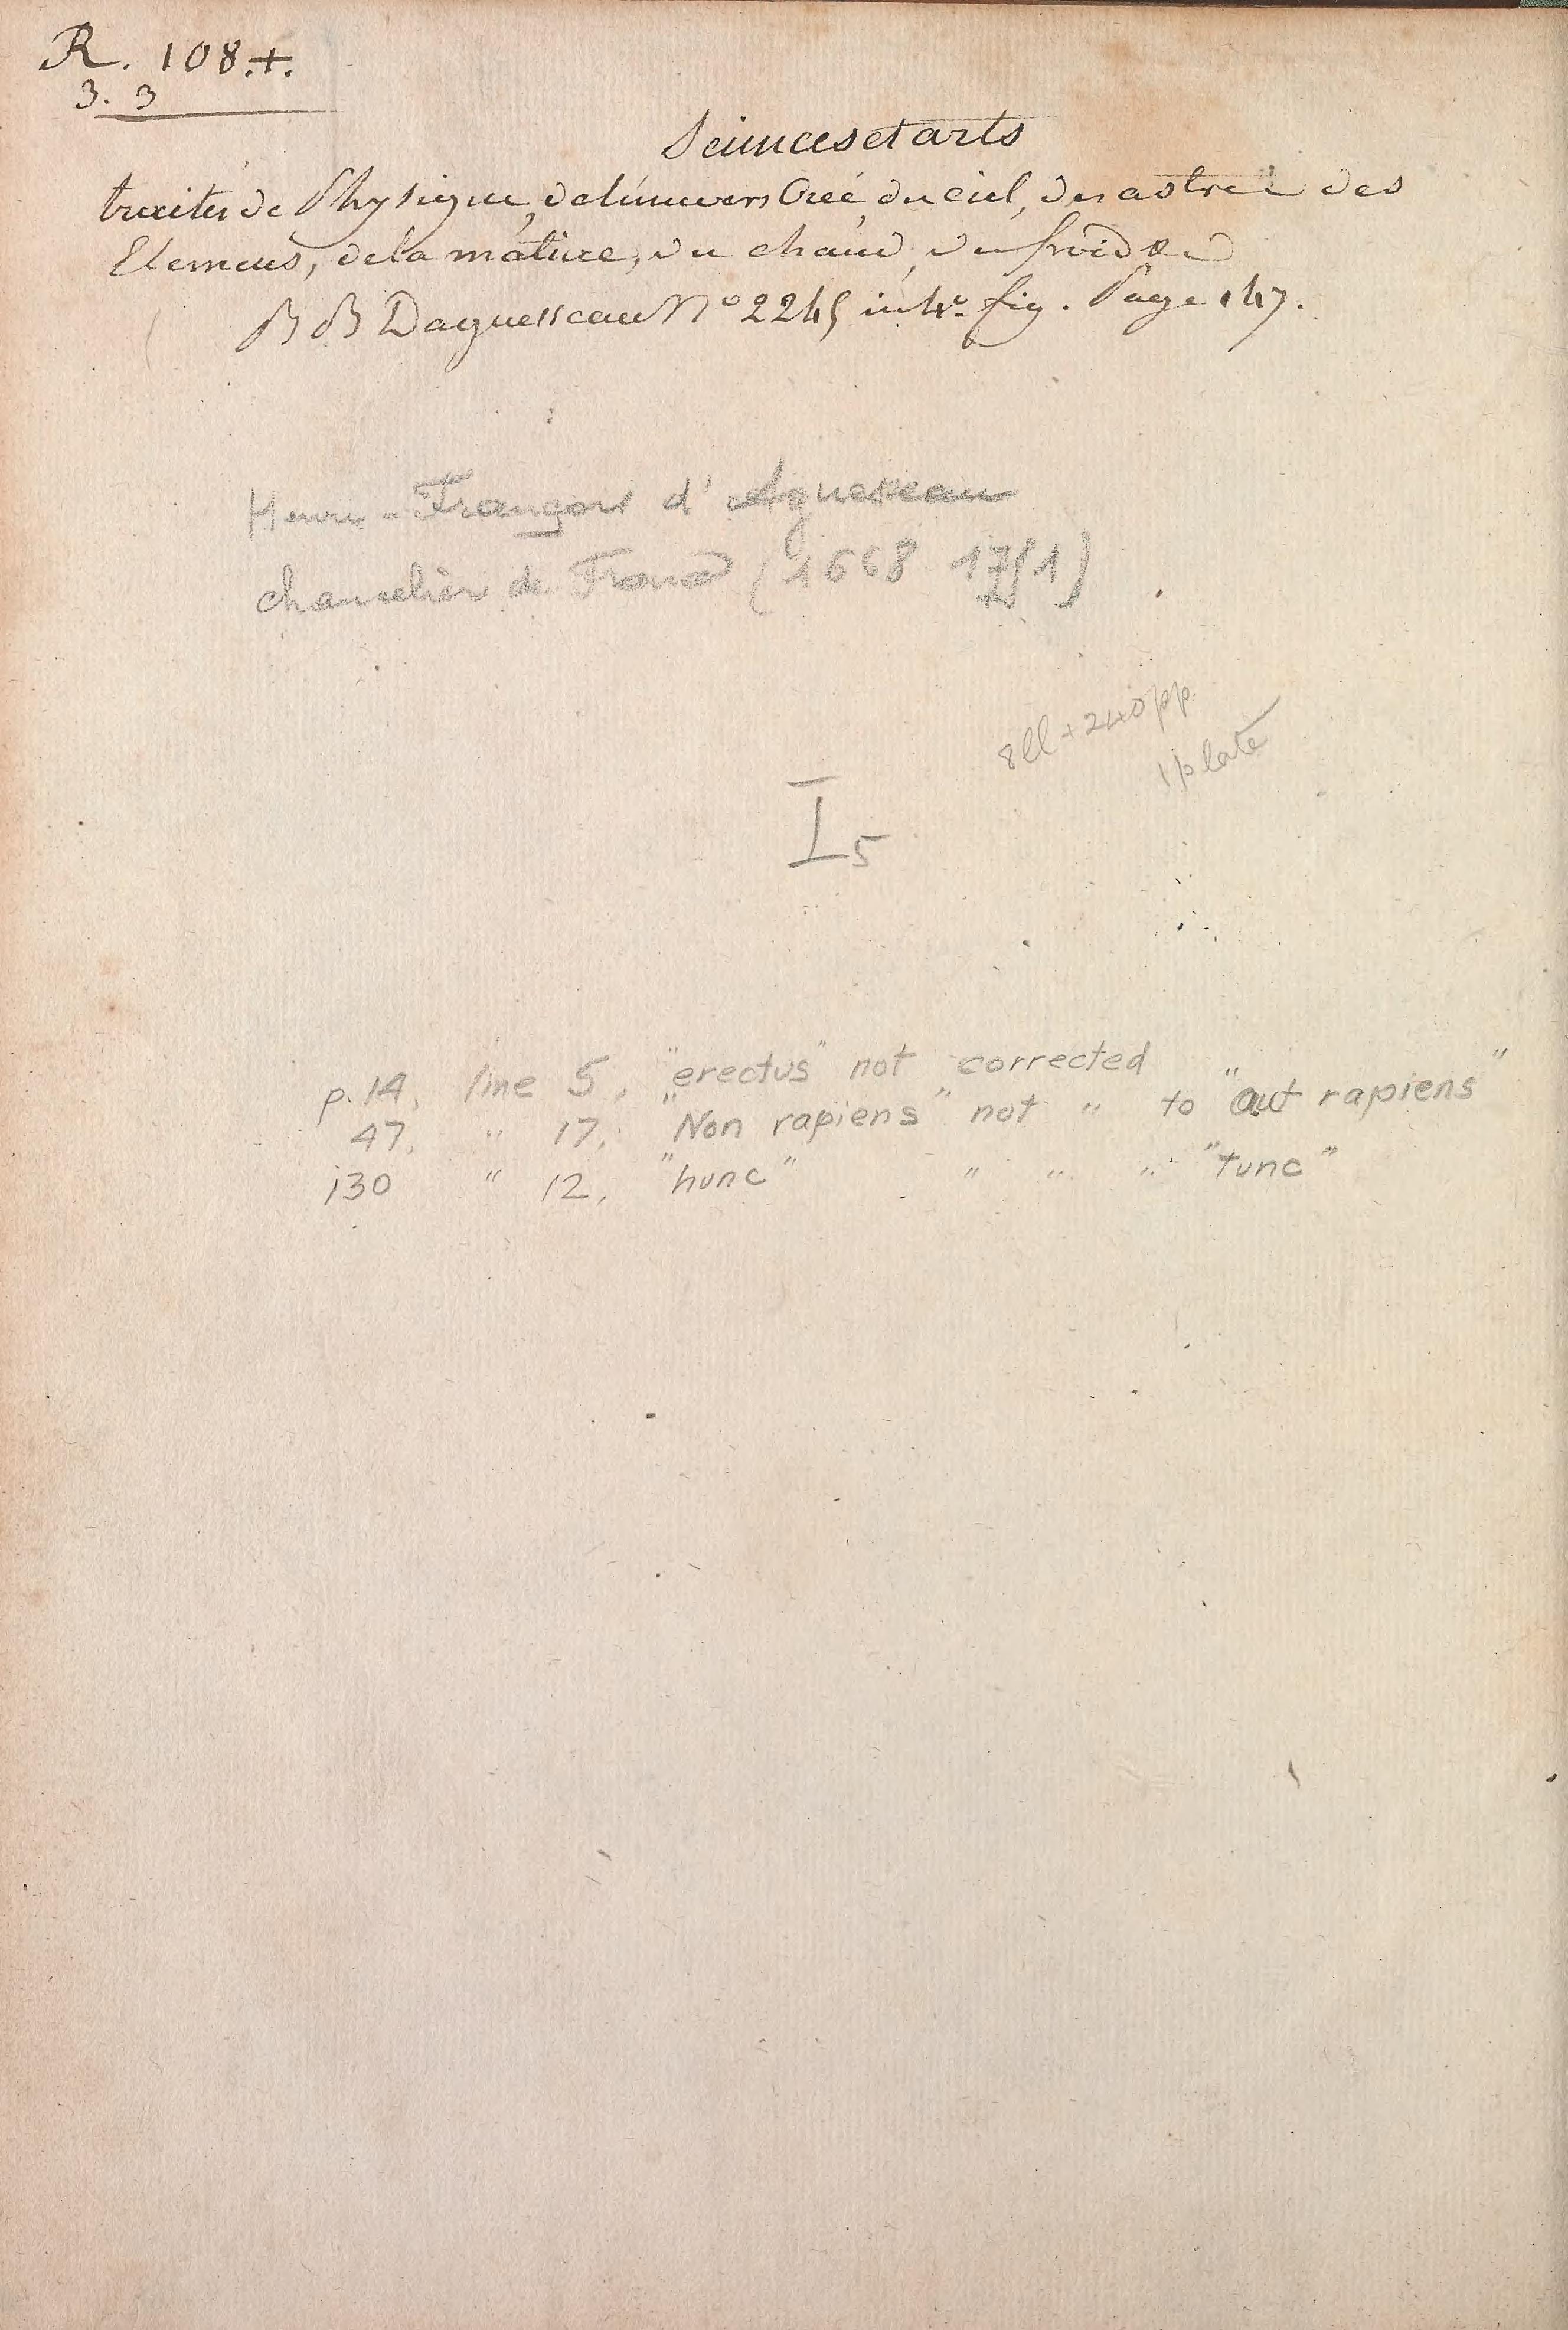 R. 108.+.
3. 3
Sciences et arts
traités de Physique, de l'univers Créé, du ciel, des astres des
Elemens, de la matiere, du chaud, du froid &c
BB Daguesseau No 2245 in 4o. fig. Page 147.
Henri-François d'Aguesseau
chancelier de France (1668 1751)
8ll + 240 pp.
1 plate
I5
p. 14, line 5, "erectus" not corrected
47, " 17, "Non rapiens" not " to "aut rapiens"
130 " 12, "hunc" " " " "tunc"